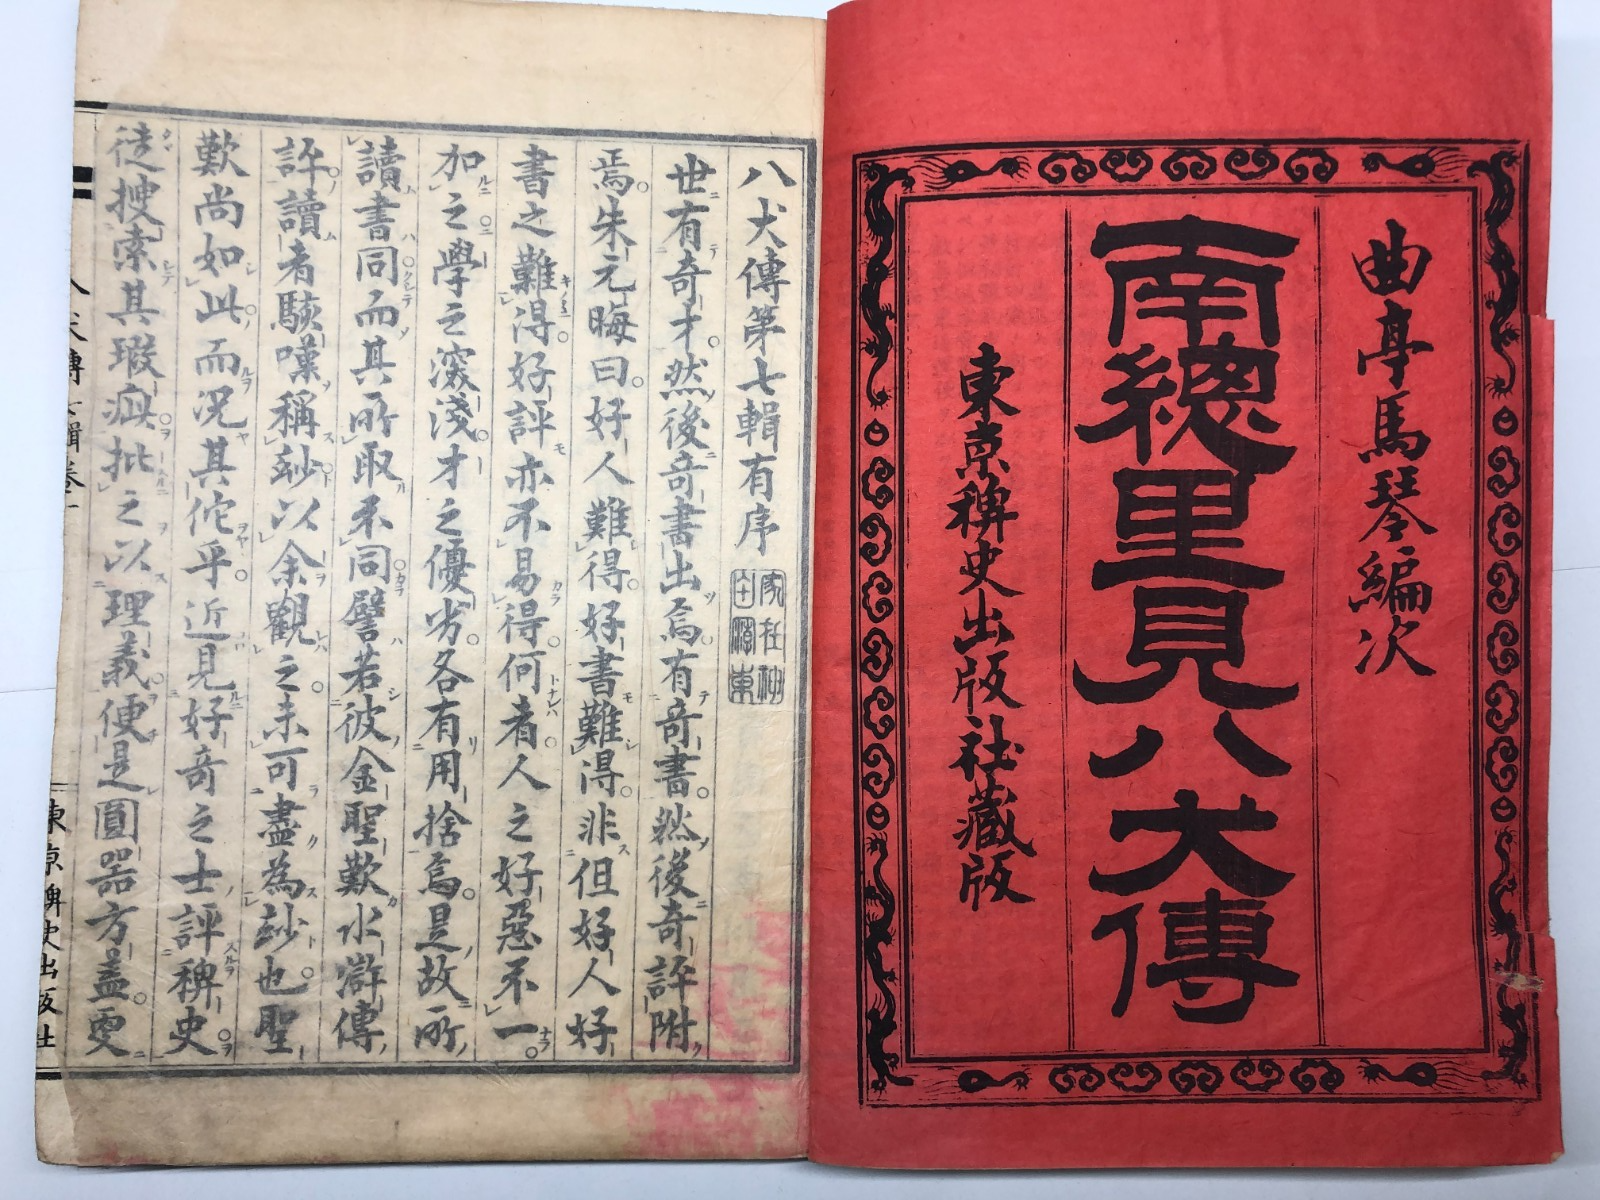 曲亭馬琴編次
南總里見八犬傳
東京稗史出版社藏版
八犬傳第七輯有序
世有奇才然後奇書出焉有奇書然後奇評附
焉朱元晦曰好人難得好書難得非但好人好
書之難得好評亦不易得何者人之好惡不一
加之學之深淺才之優劣各有用捨焉是故所
讀書同而其所取不同譬若彼金聖歎水滸傳
評讀者駭嘆稱玅以余觀之未可盡為玅也聖
歎尚如此而况其佗乎近見好奇之士評稗史
徒搜索其瑕疵批之以理義便是圓器方盖耍
八犬傳七輯卷一
東京稗史出版社